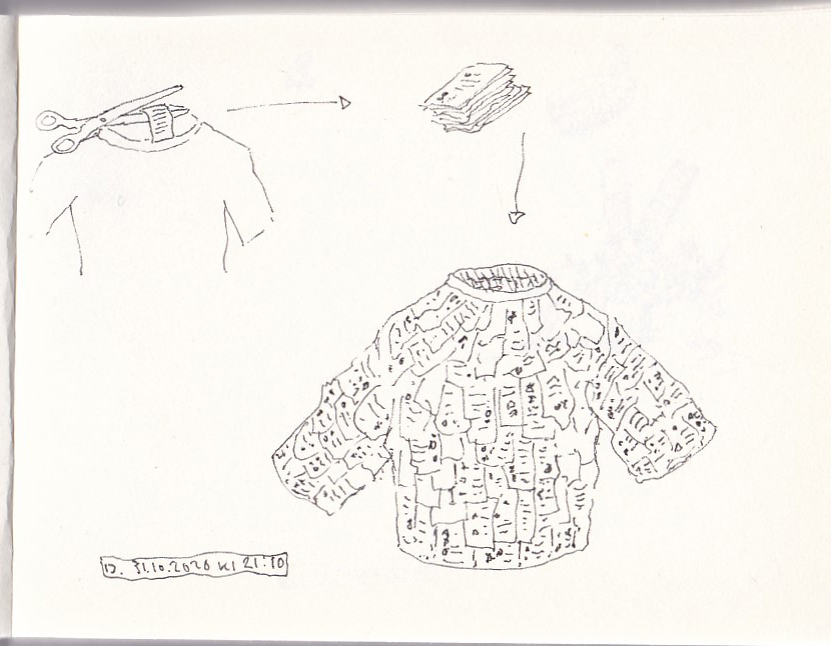 D. 31.10.2020 kl 21:10